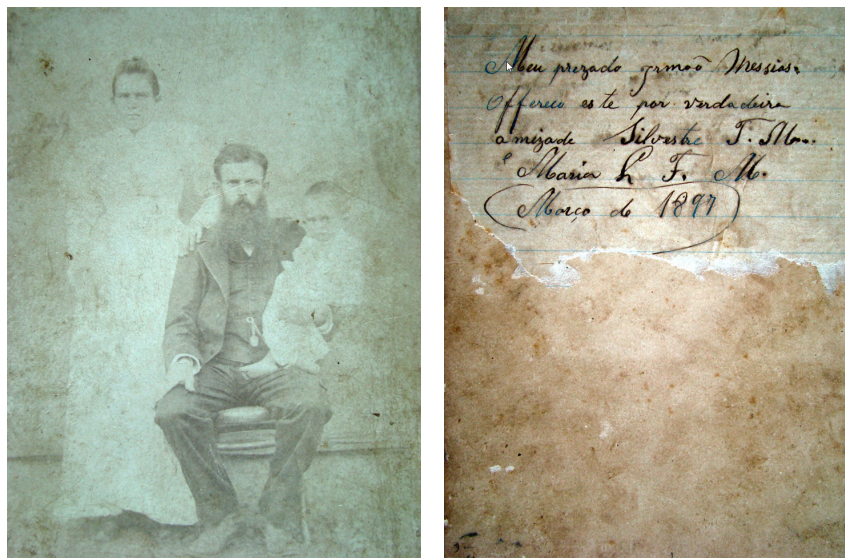 Meu prezado Irmaõ Messias.
Offereço este por verdadeira
amizade Silvestre F. M.
e Maria L F. M.
Março de 1897